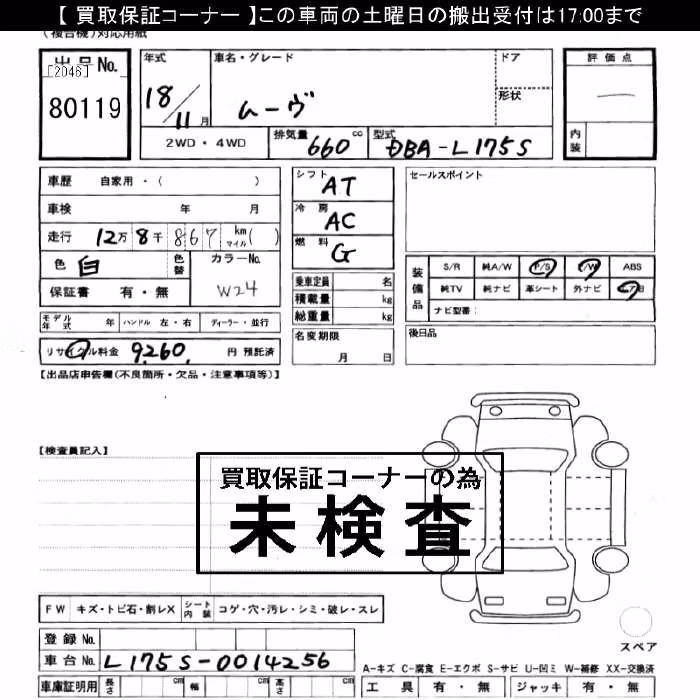 【 買取保証コーナー 】この車両の土曜日の搬出受付は17:00まで
(複合機)対応用紙
出品No.
[2046]
80119
年式
18/11月
車名・グレード
ムーヴ
ドア
形状
評価点
内装
2WD・4WD
排気量 660 cc
型式 DBA-L175S
車歴 自家用・( )
車検 年 月
走行 12万8千867 km マイル( )
色 白
色替
カラーNo. W24
保証書 有・無
シフト AT
冷房 AC
燃料 G
乗車定員 名
積載量 kg
総重量 kg
名変期限
月 日
セールスポイント
装備品
S/R 純A/W P/S P/W ABS
純TV 純ナビ 革シート 外ナビ
ナビ型番:
後日品
モデル年式 年 ハンドル 左・右 ディーラー・並行
リサイクル料金 9260 円 預託済
【出品店申告欄(不良箇所・欠品・注意事項等)】
【検査員記入】
買取保証コーナーの為
未検査
FW キズ・トビ石・割レX シート内装 コゲ・穴・汚レ・シミ・破レ・スレ
スペア
登録No.
車台No. L175S-0014256
車庫証明用 長さ cm 幅 cm 高さ cm
A-キズ C-腐食 E-エクボ S-サビ U-凹ミ W-補修 XX-交換済
工具 有・無 ジャッキ 有・無